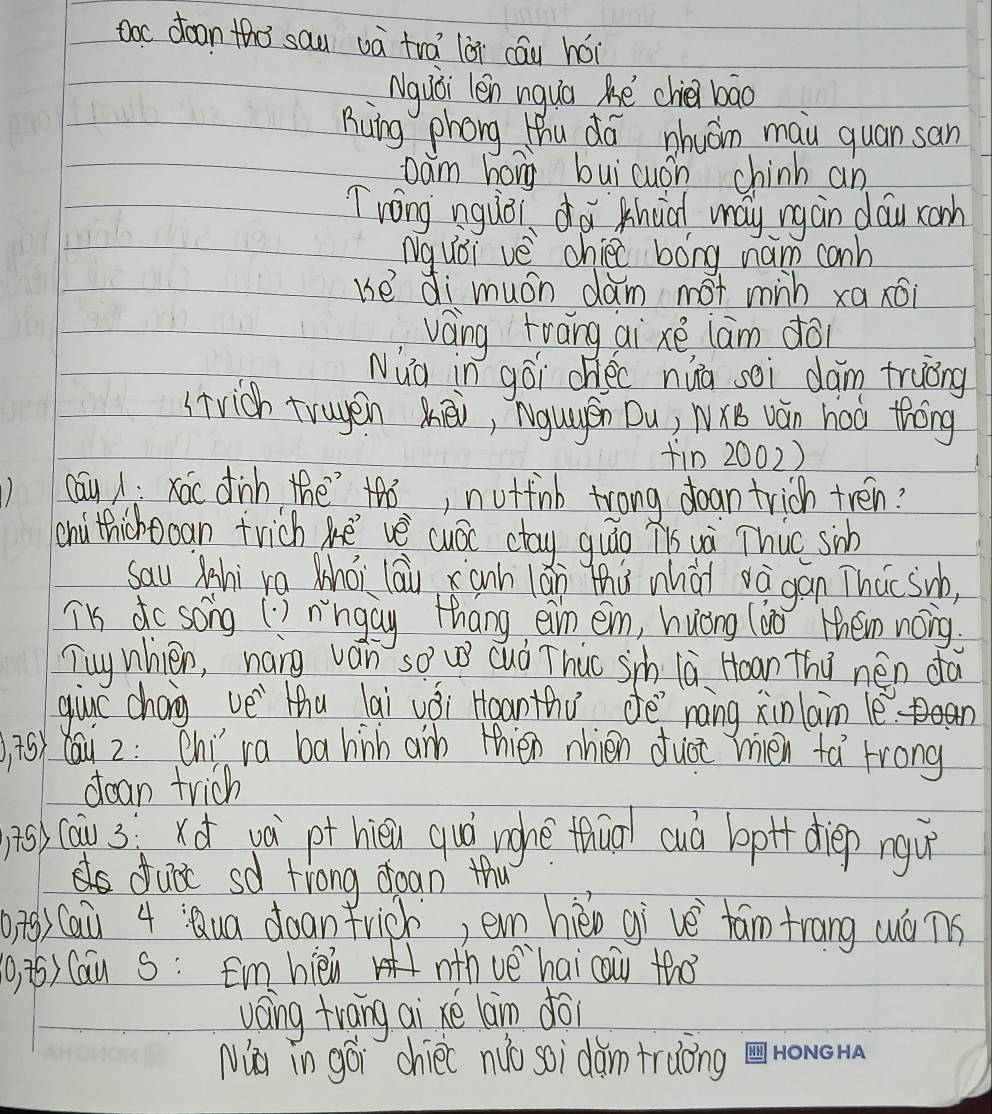 Đọc đoạn thơ sau và trả lời câu hỏi
Người lên ngựa kẻ chia bào
Rừng phong thu đã nhuốm màu quan san
Dặm hồng bụi cuốn chinh an
Trông người đã khuất mấy ngàn dâu xanh
Người về chiếc bóng năm canh
kẻ đi muôn dặm một mình xa xôi
vầng trăng ai xẻ làm đôi
Nửa in gối chiếc nửa soi dặm trường
(trích truyện kiều, Nguyễn Du, NXB văn hoá thông
tin 2002)
1) Câu 1: xác định thể thơ, nvttình trong đoạn trích trên?
chú thích đoạn trích kể về cuộc chia tay giữa TK và Thúc sinh
sau khi ra khỏi lầu xanh lần thứ nhất và gắn Thúc Sinh,
TK đc sống (.) n~ngày tháng êm êm, hương lửa thêm nồng.
Tuy nhiên, nàng vẫn sợ vợ của Thúc Sinh là Hoạn Thư nên đã
giục chàng về thu lại với Hoạn thư để nàng xin làm lẽ.
0,75) Câu 2: Chỉ ra ba hình ảnh thiên nhiên được miên tả trong
đoạn trích
0,75) Câu 3: xđ và pt hiệu quả nghệ thuật của bptt điệp ngữ
được sd trong đoạn thư
0,75) Câu 4: Qua đoạn trích, em hiểu gì về tâm trạng của TK
(0,75) Câu 5: Em hiểu ntn về hai câu thơ
vầng trăng ai xẻ làm đôi
Nửa in gối chiếc nửa soi dặm trường
HONG HA